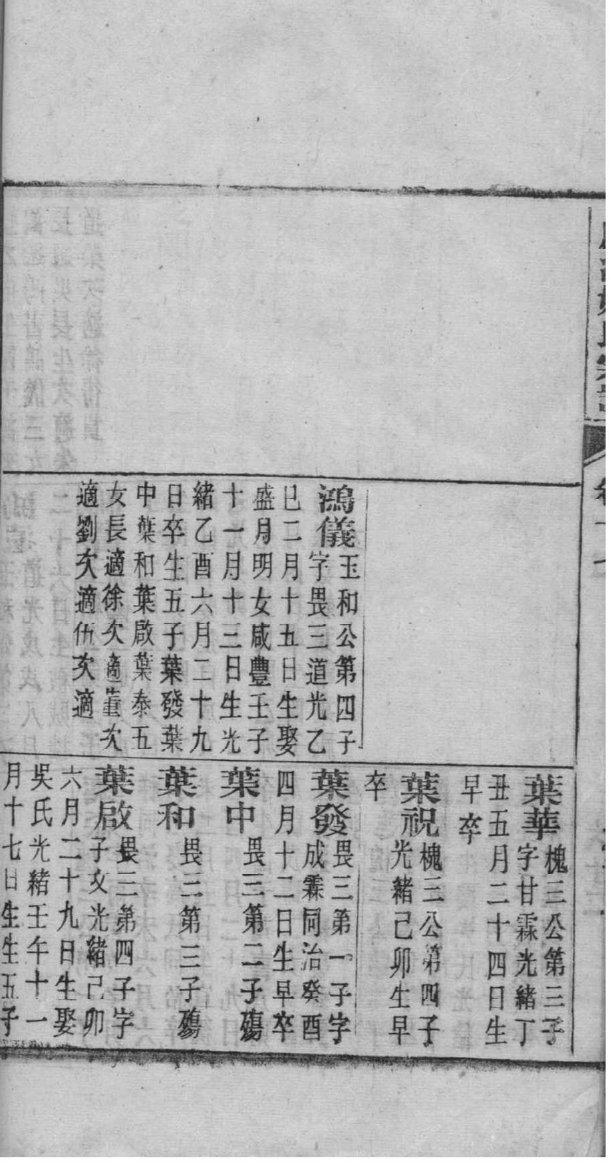 卷十
鴻儀玉和公第四子
字畏三道光乙
巳二月十五日生娶
盛月明女咸豐壬子
十一月十三日生光
緒乙酉六月二十九
日卒生五子葉發葉
中葉和葉啟葉泰五
女長適徐次適董次
適劉次適伍次適
葉華槐三公第三子
字甘霖光緒丁
丑五月二十四日生
早卒
葉祝槐三公第四子
光緒己卯生早
卒
葉發畏三第一子字
成霖同治癸酉
四月十二日生早卒
葉中畏三第二子殤
葉和畏三第三子殤
葉啟畏三第四子字
子文光緒己卯
六月二十九日生娶
吳氏光緒壬午十一
月十七日生生五子